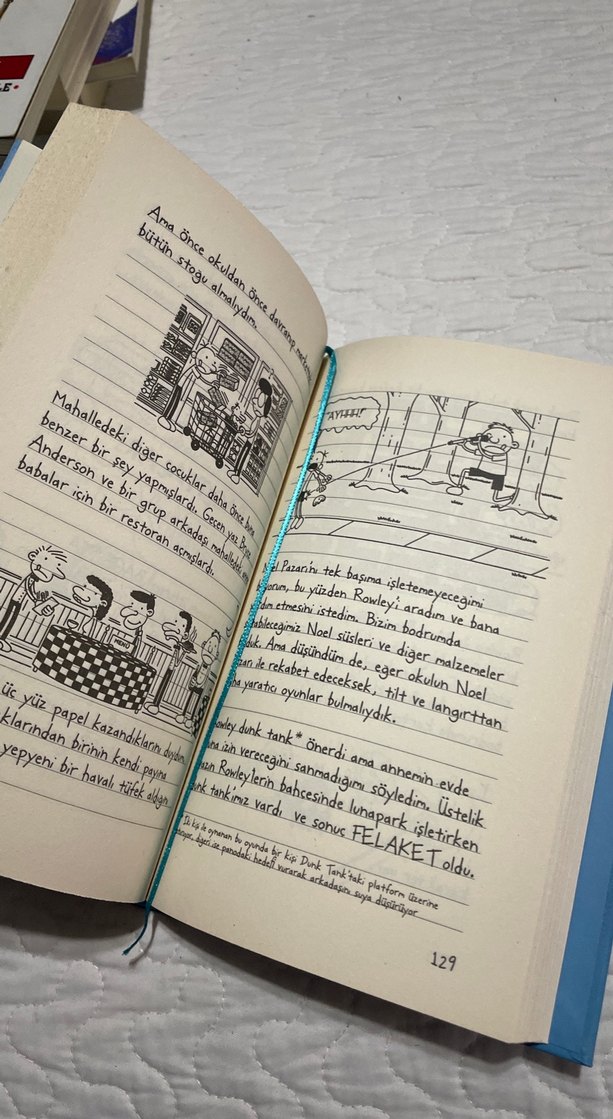 LE
Ama önce okuldan önce davranıp
bütün stoğu almalıydım.
Mahalledeki diğer çocuklar daha önce buna
benzer bir şey yapmışlardı. Geçen yaz Bryce
Anderson ve bir grup arkadaşı mahalledeki
babalar için bir restoran açmışlardı.
MENÜ
üç yüz papel kazandıklarını duydum
klarından birinin kendi payına
yepyeni bir havalı tüfek aldığın
"AYHHH!"
Pazarı'nı tek başıma işletemeyeceğimi
bu yüzden Rowley'i aradım ve bana
etmesini istedim. Bizim bodrumda
Noel süsleri ve diğer malzemeler
Ama düşündüm de, eğer okulun Noel
ile rekabet edeceksek, tilt ve langırttan
yaratıcı oyunlar bulmalıydık.
Rowley dunk tank* önerdi ama annemin evde
izin vereceğini sanmadığımı söyledim. Üstelik
yazın Rowley'lerin bahçesinde lunapark işletirken
dunk tank'imiz vardı ve sonuç FELAKET oldu.
* İki kişi ile oynanan bu oyunda bir kişi Dunk Tank'taki platform üzerine
diğeri ise panodaki hedefi vurarak arkadaşını suya düşürüyor
129